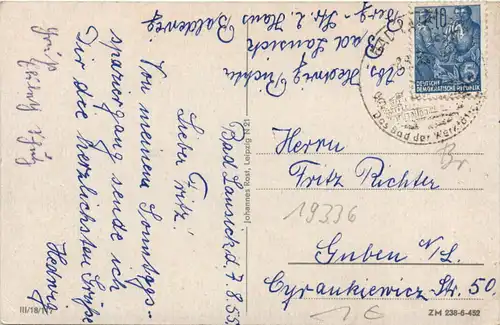 Abs. Hedwig Richter
Bad Lausick
Berg-Str. 2, Haus Baldeweg.
Bad Lausick d. 7.8.55
Lieber Fritz!
Von meinem Sonntags-
spaziergang sende ich
Dir die herzlichsten Grüße
Hedwig
Gruß
Johannes Rost, Leipzig N 21
DEUTSCHE
DEMOKRATISCHE REPUBLIK
Das Bad der
Herrn
Fritz Richter
Br
19336
Guben N/L.
Cyrankiewicz Str. 50
1€
III/18/117
ZM 238-6-452